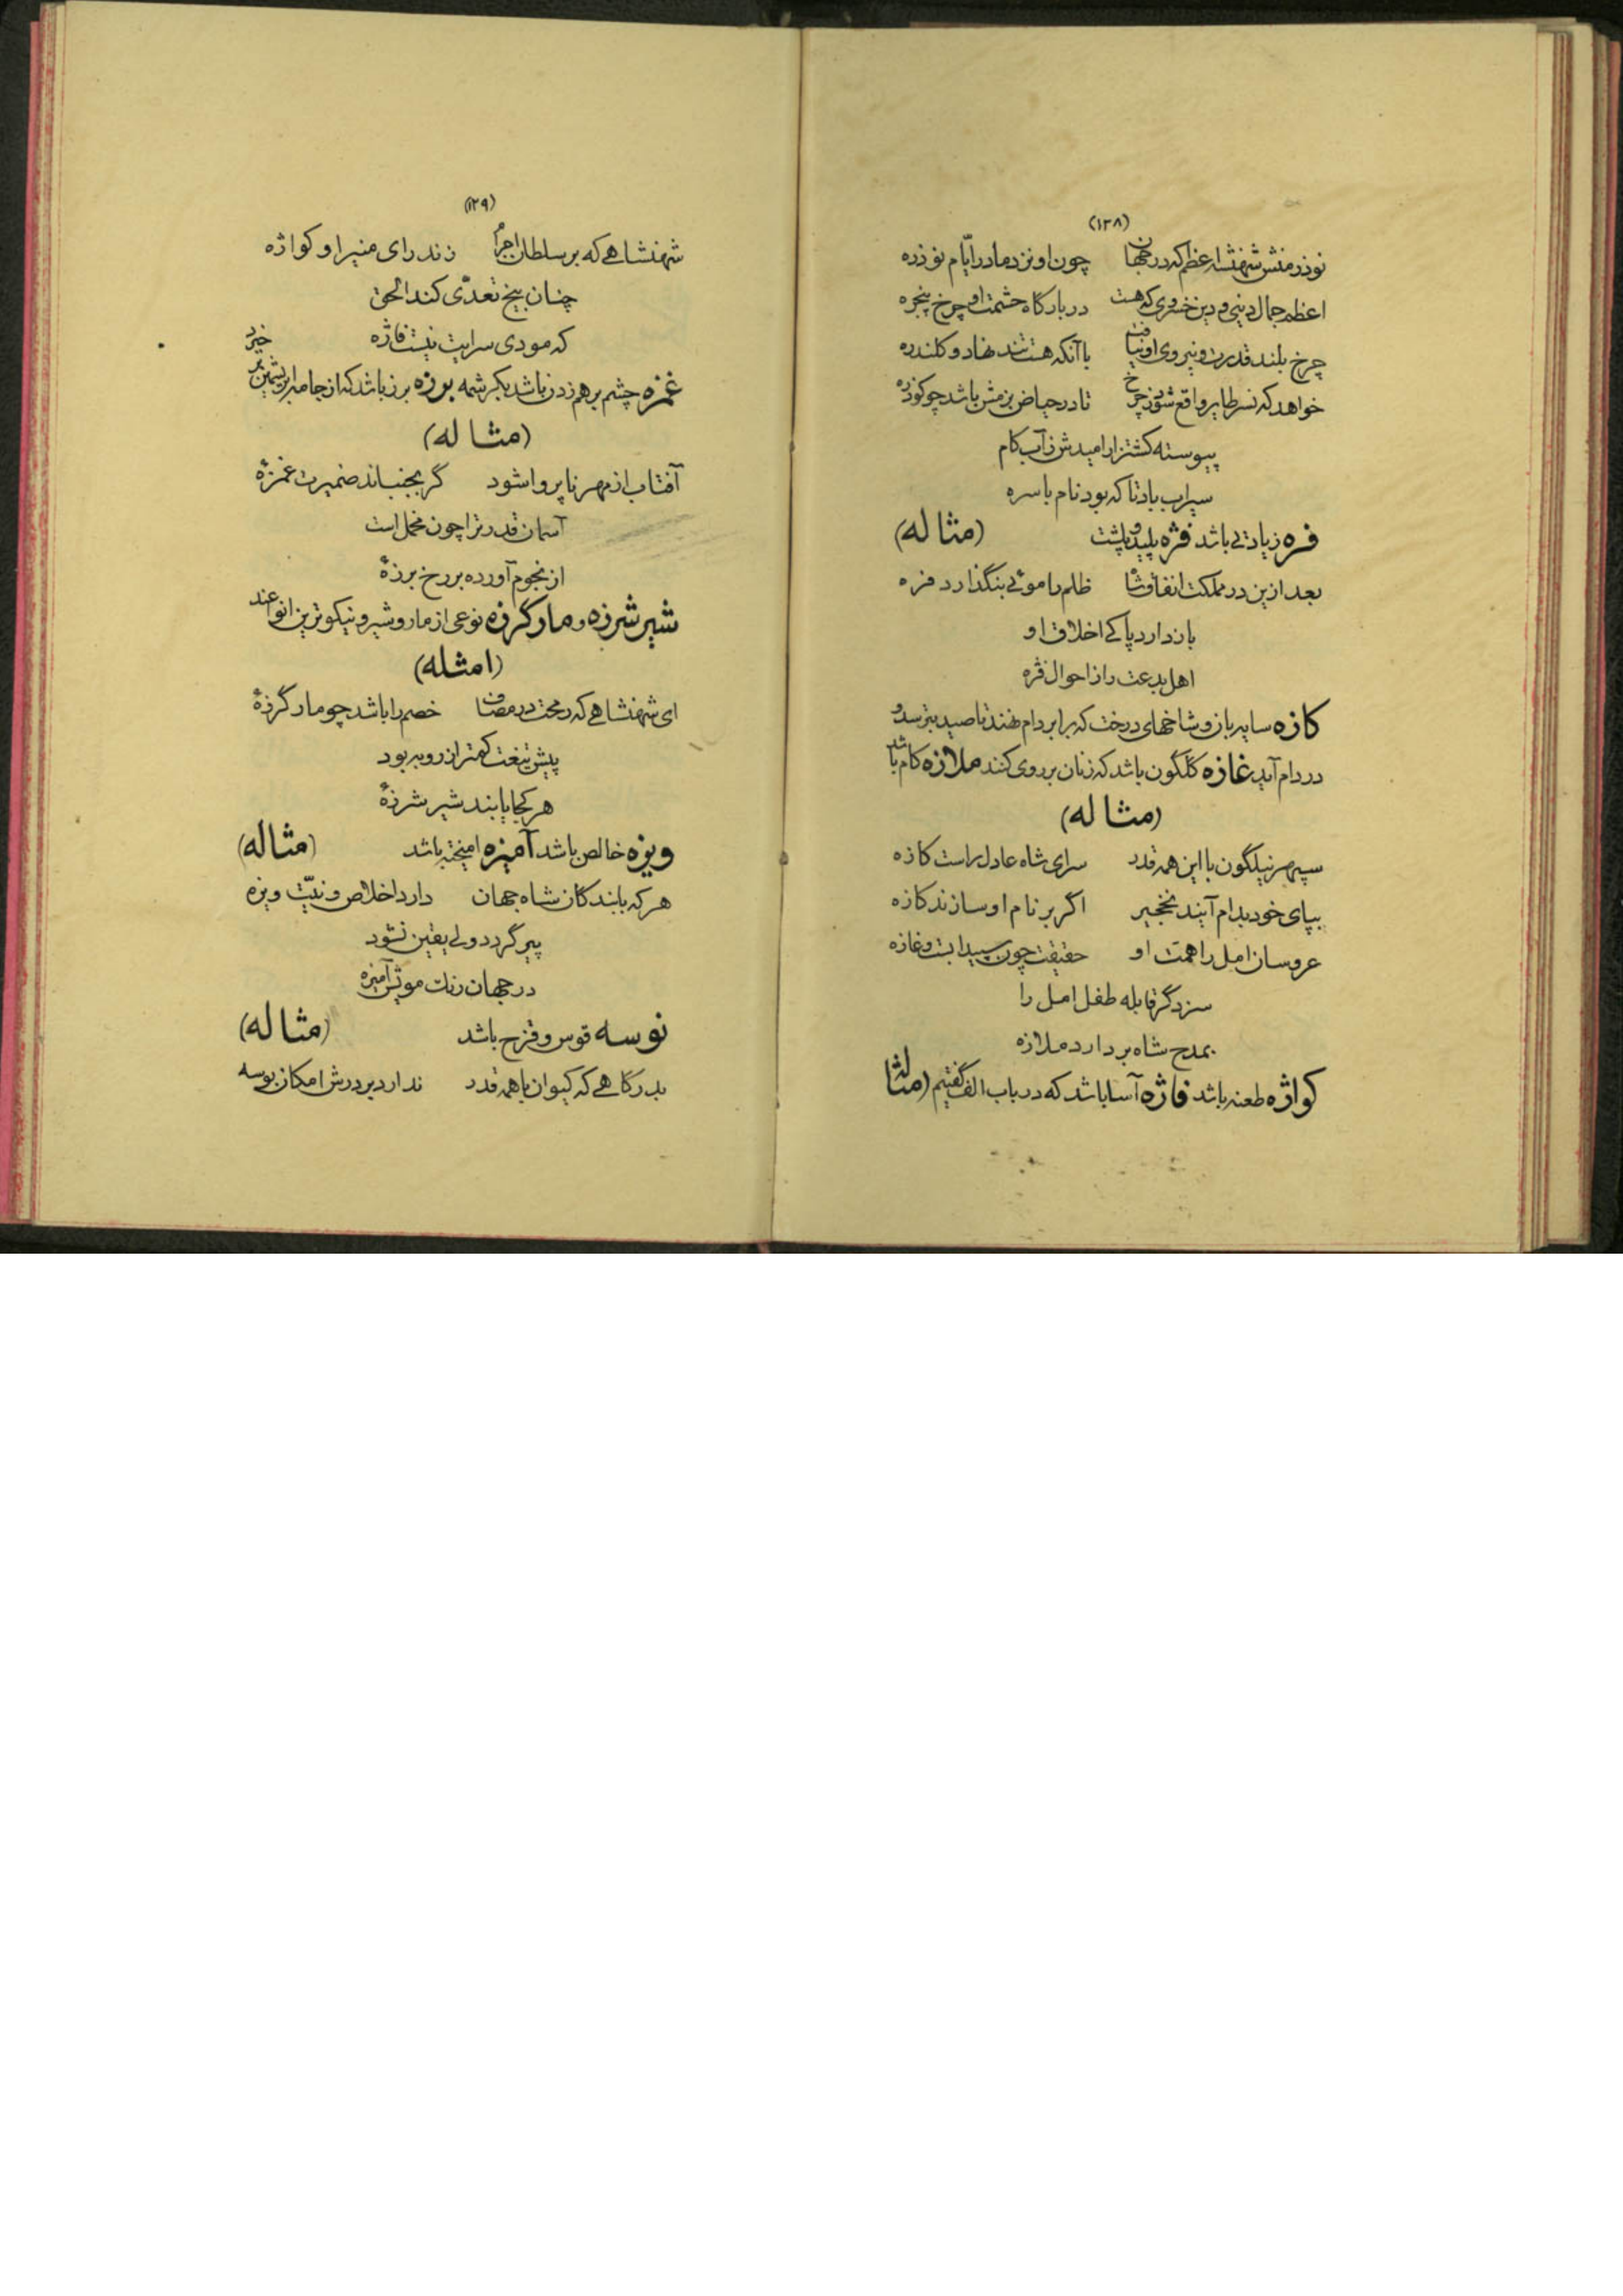 (۱۲۸)
نوذر منش شهنشه اعظم که در جهان چون او نزد مادر ایّام نوذره
اعظم جمال دینی و دین خسروی که هست در بارگاه حشمت او چرخ پنجره
چرخ بلند قدرت و نیروی او نیافت با آنکه هست تند نهاد و کلندره
خواهد که نسر طایر واقع شود ز چرخ تا در حیاض بزمش باشد چو کوذره
پیوسته کشتزار امیدش ز آب کام
سیراب باد تا که بود نام باسره
فره زیادتی باشد فژه پلید و پلشت (مثاله)
بعد ازین در مملکت انفاق شاه ظلم را موئی بنگذارد فره
باز دارد پاکی اخلاق او
اهل بدعت را ز احوال فژه
کازه سایه بان و شاخهای درخت که برابر دام نهند تا صید بترسد و
در دام آید غازه گلگون باشد که زنان بر روی کنند ملازه کام باشد
(مثاله)
سپهر نیلگون با این همه قدر سرای شاه عادل راست کازه
بپای خود بدام آیند نخجیر اگر بر نام او سازند کازه
عروسان امل را همت او حقیقت چون سپیدابست و غازه
سزد گر قابله طفل امل را
بمدح شاه بردارد ملازه
کواژه طعنه باشد فاژه آسا باشد که در باب الف گفتیم (مثاله
(۱۲۹)
شهنشاهی که بر سلطان اجرام زند رای منیر او کواژه
چنان بیخ تعدّی کند الحق
که مودی سرایت نیست فاژه
غمزه چشم برهم زدن باشد بکرشمه بوزه برز باشد که از جامه ابریشمین بر خیزد
(مثاله)
آفتاب از مهر ناپروا شود گر بجنباند ضمیرت غمزهٔ
آسمان قدر ترا چون مخمل است
از نجوم آورده بر رخ برزهٔ
شیر شرزه و مار گرزه نوعی از مار و شیر و نیکوترین انواعند
(امثله)
ای شهنشاهی که رمحت در مصاف خصم را باشد چو مار گرزهٔ
پیش تیغت کمتر از روبه بود
هر کجا یابند شیر شرزهٔ
ویژه خالص باشد آمیزه امیخته باشد (مثاله)
هر که با بندگان شاه جهان دارد اخلاص و نیّت ویژه
پیر گردد ولی یقین نشود
در جهان رنگ مویش آمیزه
نوسه قوس و قزح باشد (مثاله)
بدرگاهی که کیوان با همه قدر ندارد بر درش امکان بوسه